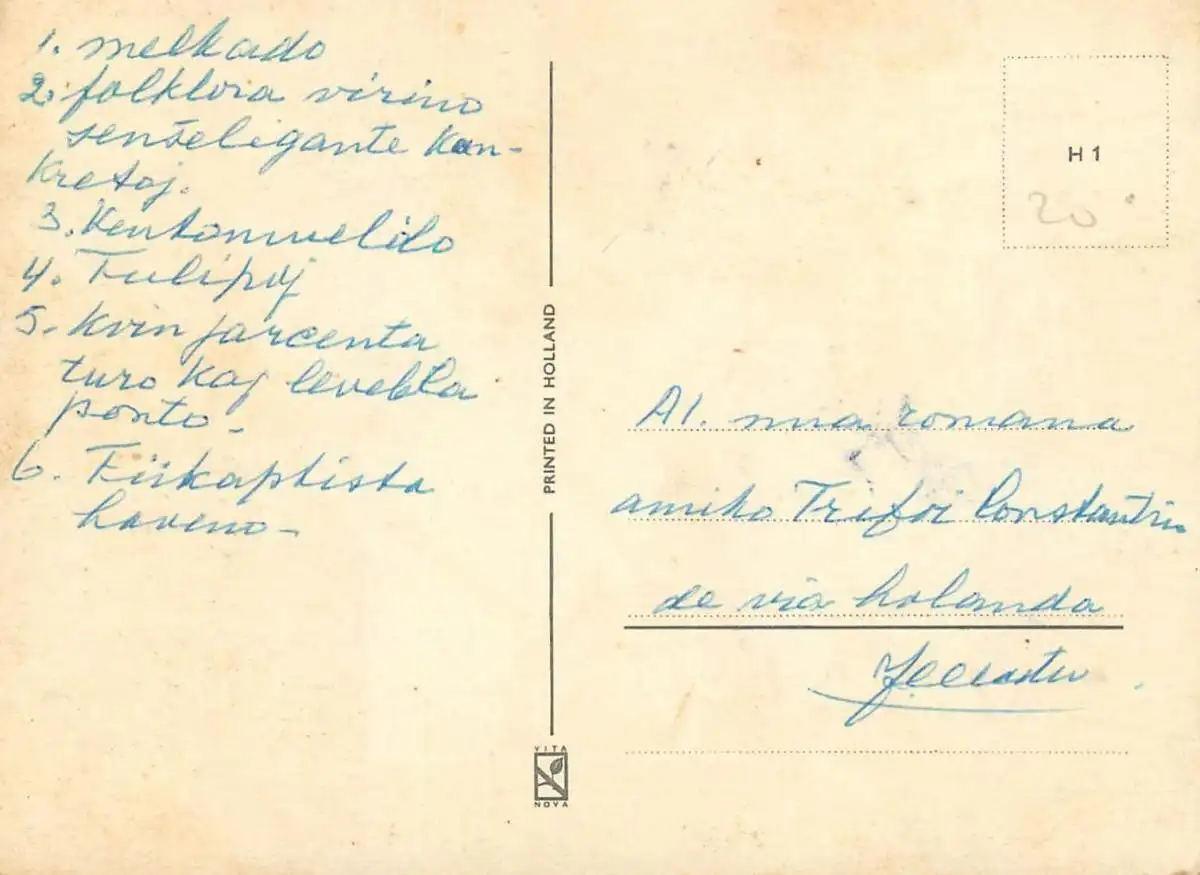 1. melkado
2. folklora virino
senŝeligante kan-
kretoj.
3. Ventomuelilo
4. Tulipoj
5. Kvin jarcenta
turo kaj levebla
ponto.
6. Fiŝkaptista
haveno-
PRINTED IN HOLLAND
VITA
NOVA
H 1
20
Al. mia romana
amiko Trifoi Constantin
de via holanda